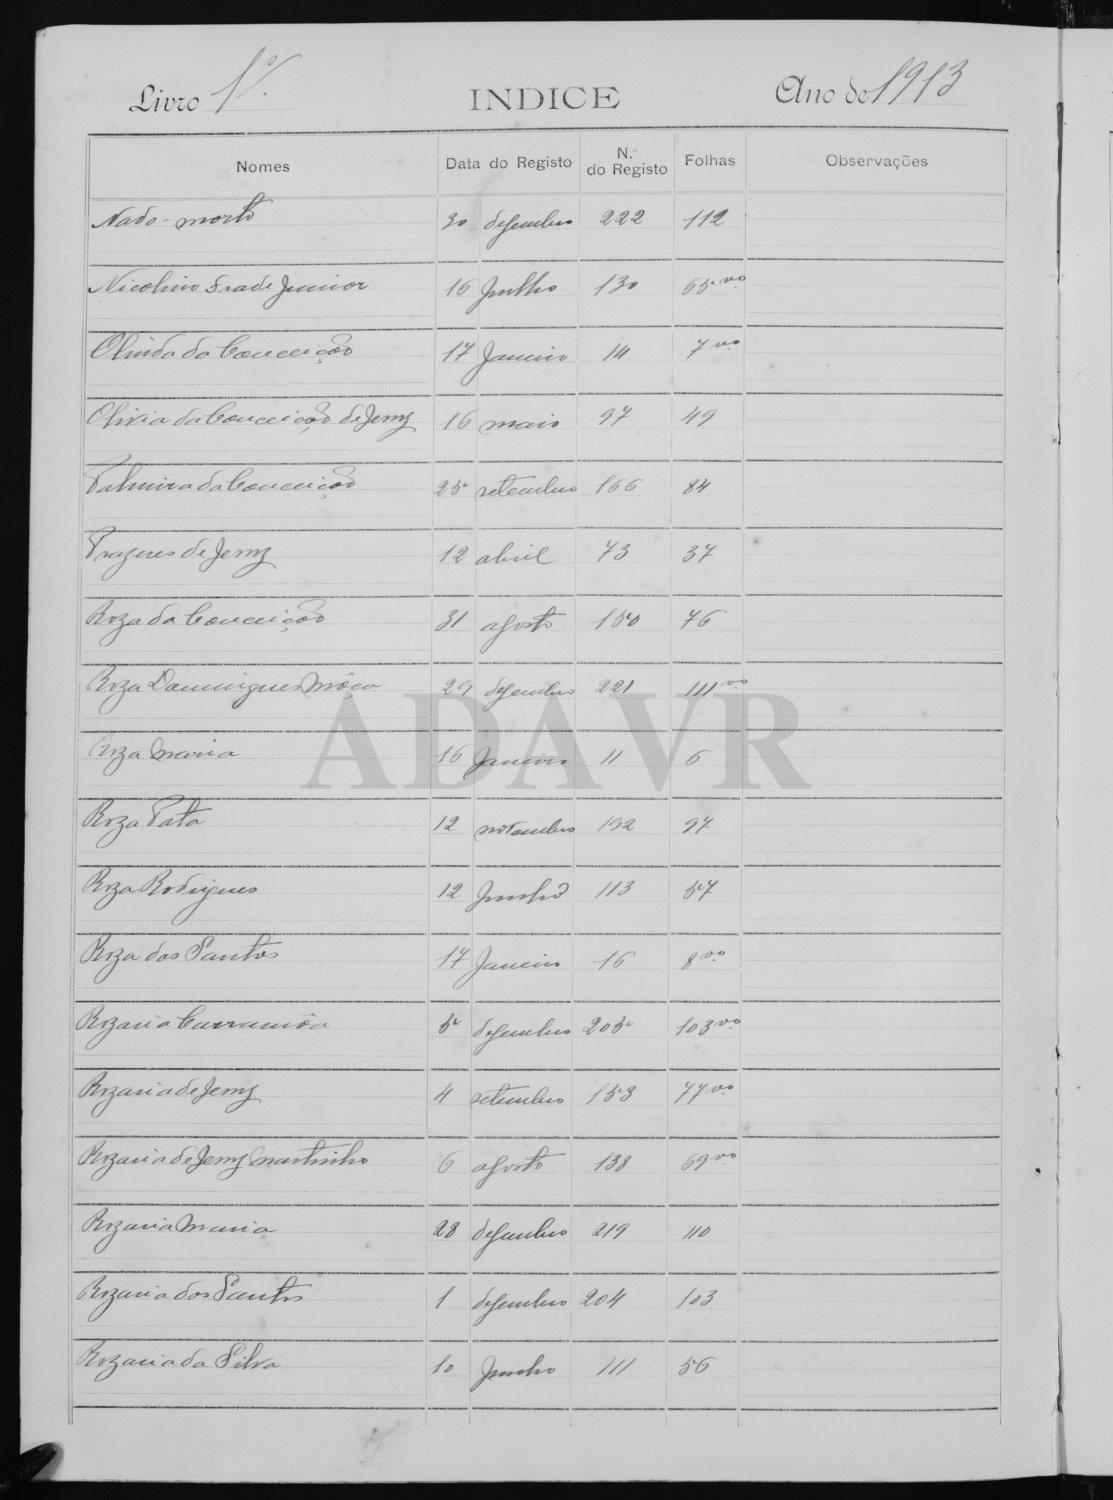 Livro 1º. INDICE Ano de 1913
Nomes Data do Registo N.º do Registo Folhas Observações
Nado-morto 30 dezembro 222 112
Nicolino Frade Junior 16 Julho 130 65 vo.
Olinda da Conceição 17 Janeiro 14 7 vo.
Olivia da Conceição de Jesus 16 maio 97 49
Palmira da Conceição 25 setembro 166 84
Prazeres de Jesus 12 abril 73 37
Roza da Conceição 31 agosto 150 76
Roza Domingues Môça 29 dezembro 221 111 vo.
Roza Maria 16 Janeiro 11 6
Roza Pata 12 novembro 192 97
Roza Rodrigues 12 Junho 113 57
Roza dos Santos 17 Janeiro 16 8 vo.
Rozaria Carramôa 5 dezembro 205 103 vo.
Rozaria de Jesus 4 setembro 153 77 vo.
Rozaria de Jesus Martinho 6 agosto 138 69 vo.
Rozaria Maria 28 dezembro 219 110
Rozaria dos Santos 1 dezembro 204 103
Rozaria da Silva 10 Junho 111 56
ADAVR